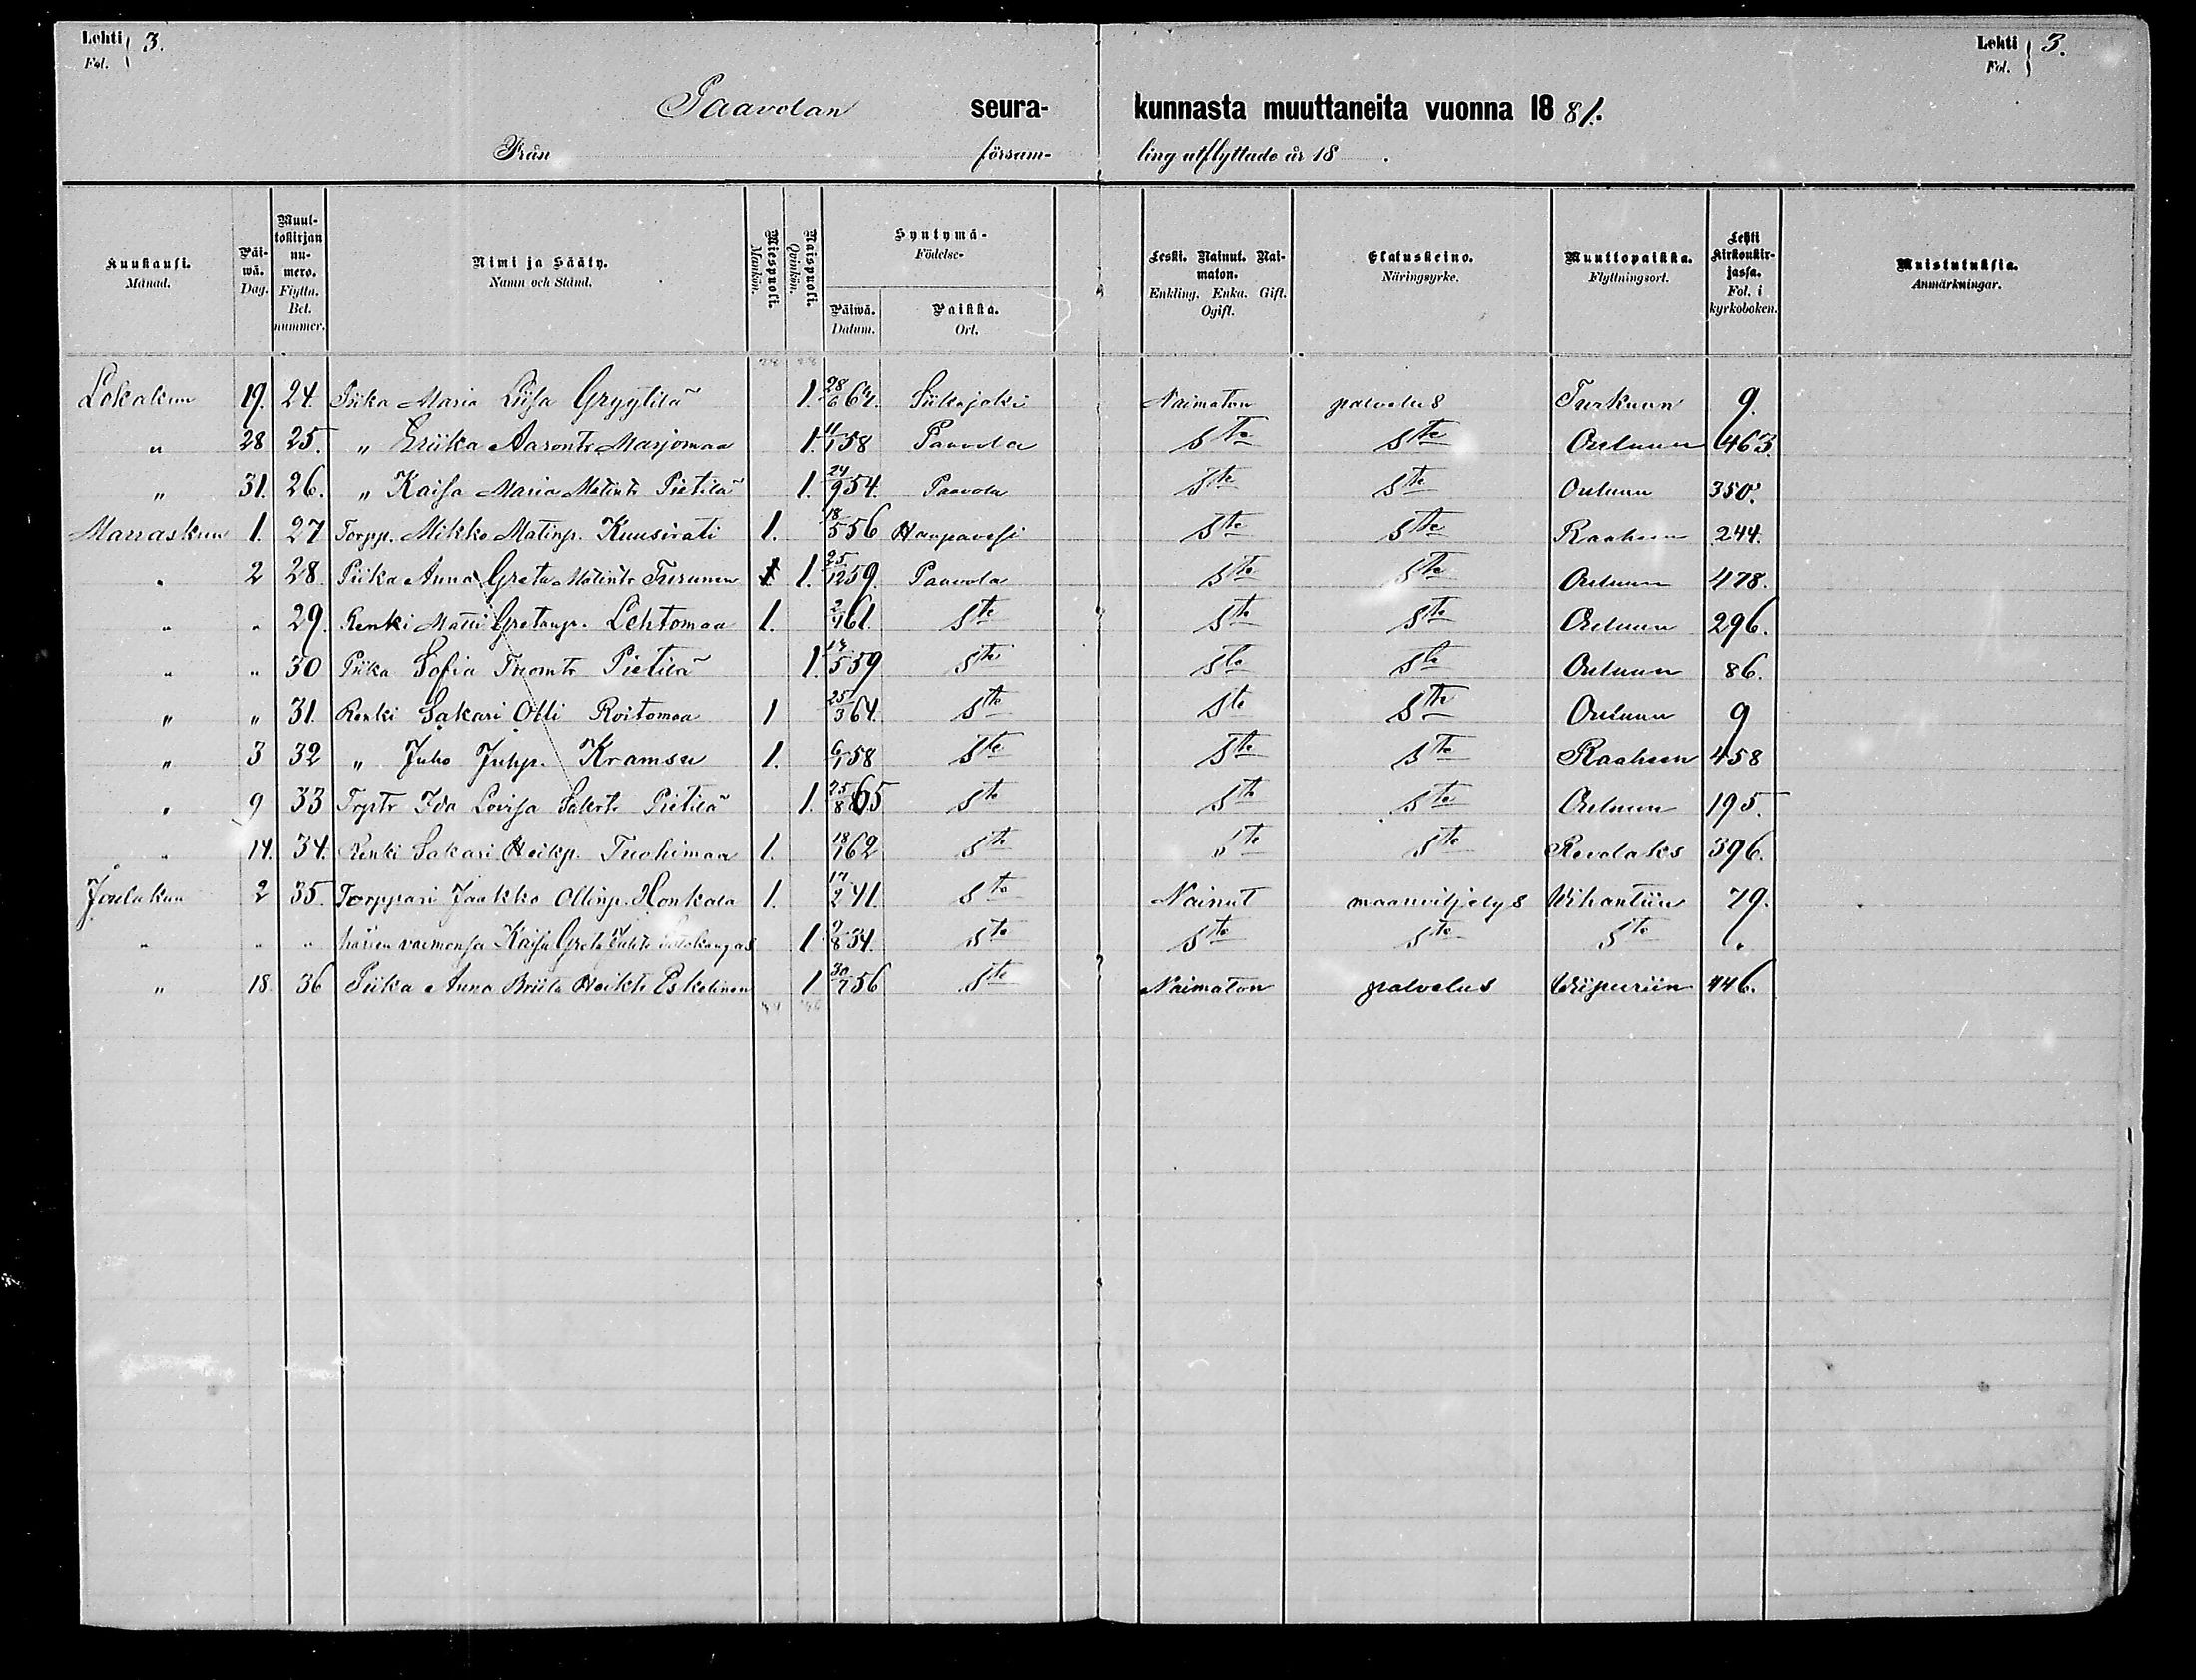 Lehti 3. Lehti 3.
Fol. Fol.
Paavolan seura- kunnasta muuttaneita vuonna 18 81.
Från försam- ling utflyttade år 18 .
Kuukausi. Månad. Päi- wä. Dag. Muut- tokirjan nu- mero. Flyttn. Bet. nummer. Nimi ja Sääty. Namn och Stånd. Miespuoli. Mankön. Naispuoli. Qvinkön. Syntymä- Födelse- Päiwä. Datum. Paikka. Ort. Leski. Nainut. Nai- maton. Enkling. Enka. Gift. Ogift. Elatuskeino. Näringsyrke. Muuttopaikka. Flyttningsort. Lehti Kirkonkir- jassa. Fol. i kyrkoboken. Muistutuksia. Anmärkningar.
Lokakuu 19. 24. Piika Maria Liisa Gryytilä 1. 28/6 64. Siikajoki Naimaton palvelus Turkuun 9.
" 28 25. " Eriika Aarontr Marjomaa 1. 11/1 58 Paavola Ste Ste Ouluun 463.
" 31. 26. " Kaisa Maria Matintr Pietilä 1. 24/9 54. Paavola Ste Ste Ouluun 350.
Marraskuu 1. 27 Torpp. Mikko Matinp. Kuusirati 1. 18/5 56 Haapavesi Ste Ste Raaheen 244.
" 2 28. Piika Anna Greta Matintr Turunen 1. 25/12 59. Paavola Ste Ste Ouluun 478.
" " 29. Renki Matti Gretanp. Lehtomaa 1. 2/1 61. Ste Ste Ste Ouluun 296.
" " 30 Piika Sofia Tuomtr Pietilä 1. 17/5 59 Ste Ste Ste Ouluun 86.
" " 31. Renki Sakari Olli Roitomaa 1 25/3 64. Ste Ste Ste Ouluun 9
" 3 32 " Juho Juhp. Kramsu 1. 6/1 58 Ste Ste Ste Raaheen 458
" 9 33 Trptr Ida Lovisa Sakrtr Pietilä 1. 25/8 65 Ste Ste Ste Ouluun 195.
" 14. 34. Renki Sakari Heikp. Tuohimaa 1. 18/1 62 Ste Ste Ste Revolaks 396.
Joulukuu 2 35. Torppari Jaakko Ollinp. Honkala 1. 17/2 41. Ste Nainut maanviljelys Vihantiin 79.
" " " hänen vaimonsa Kaisa Greta 1 9/8 34. Ste Ste Ste Ste "
" 18. 36 Piika Anna Briita Heiktr Eskelinen 1 30/7 56 Ste Naimaton palvelus Wiipuriin 446.